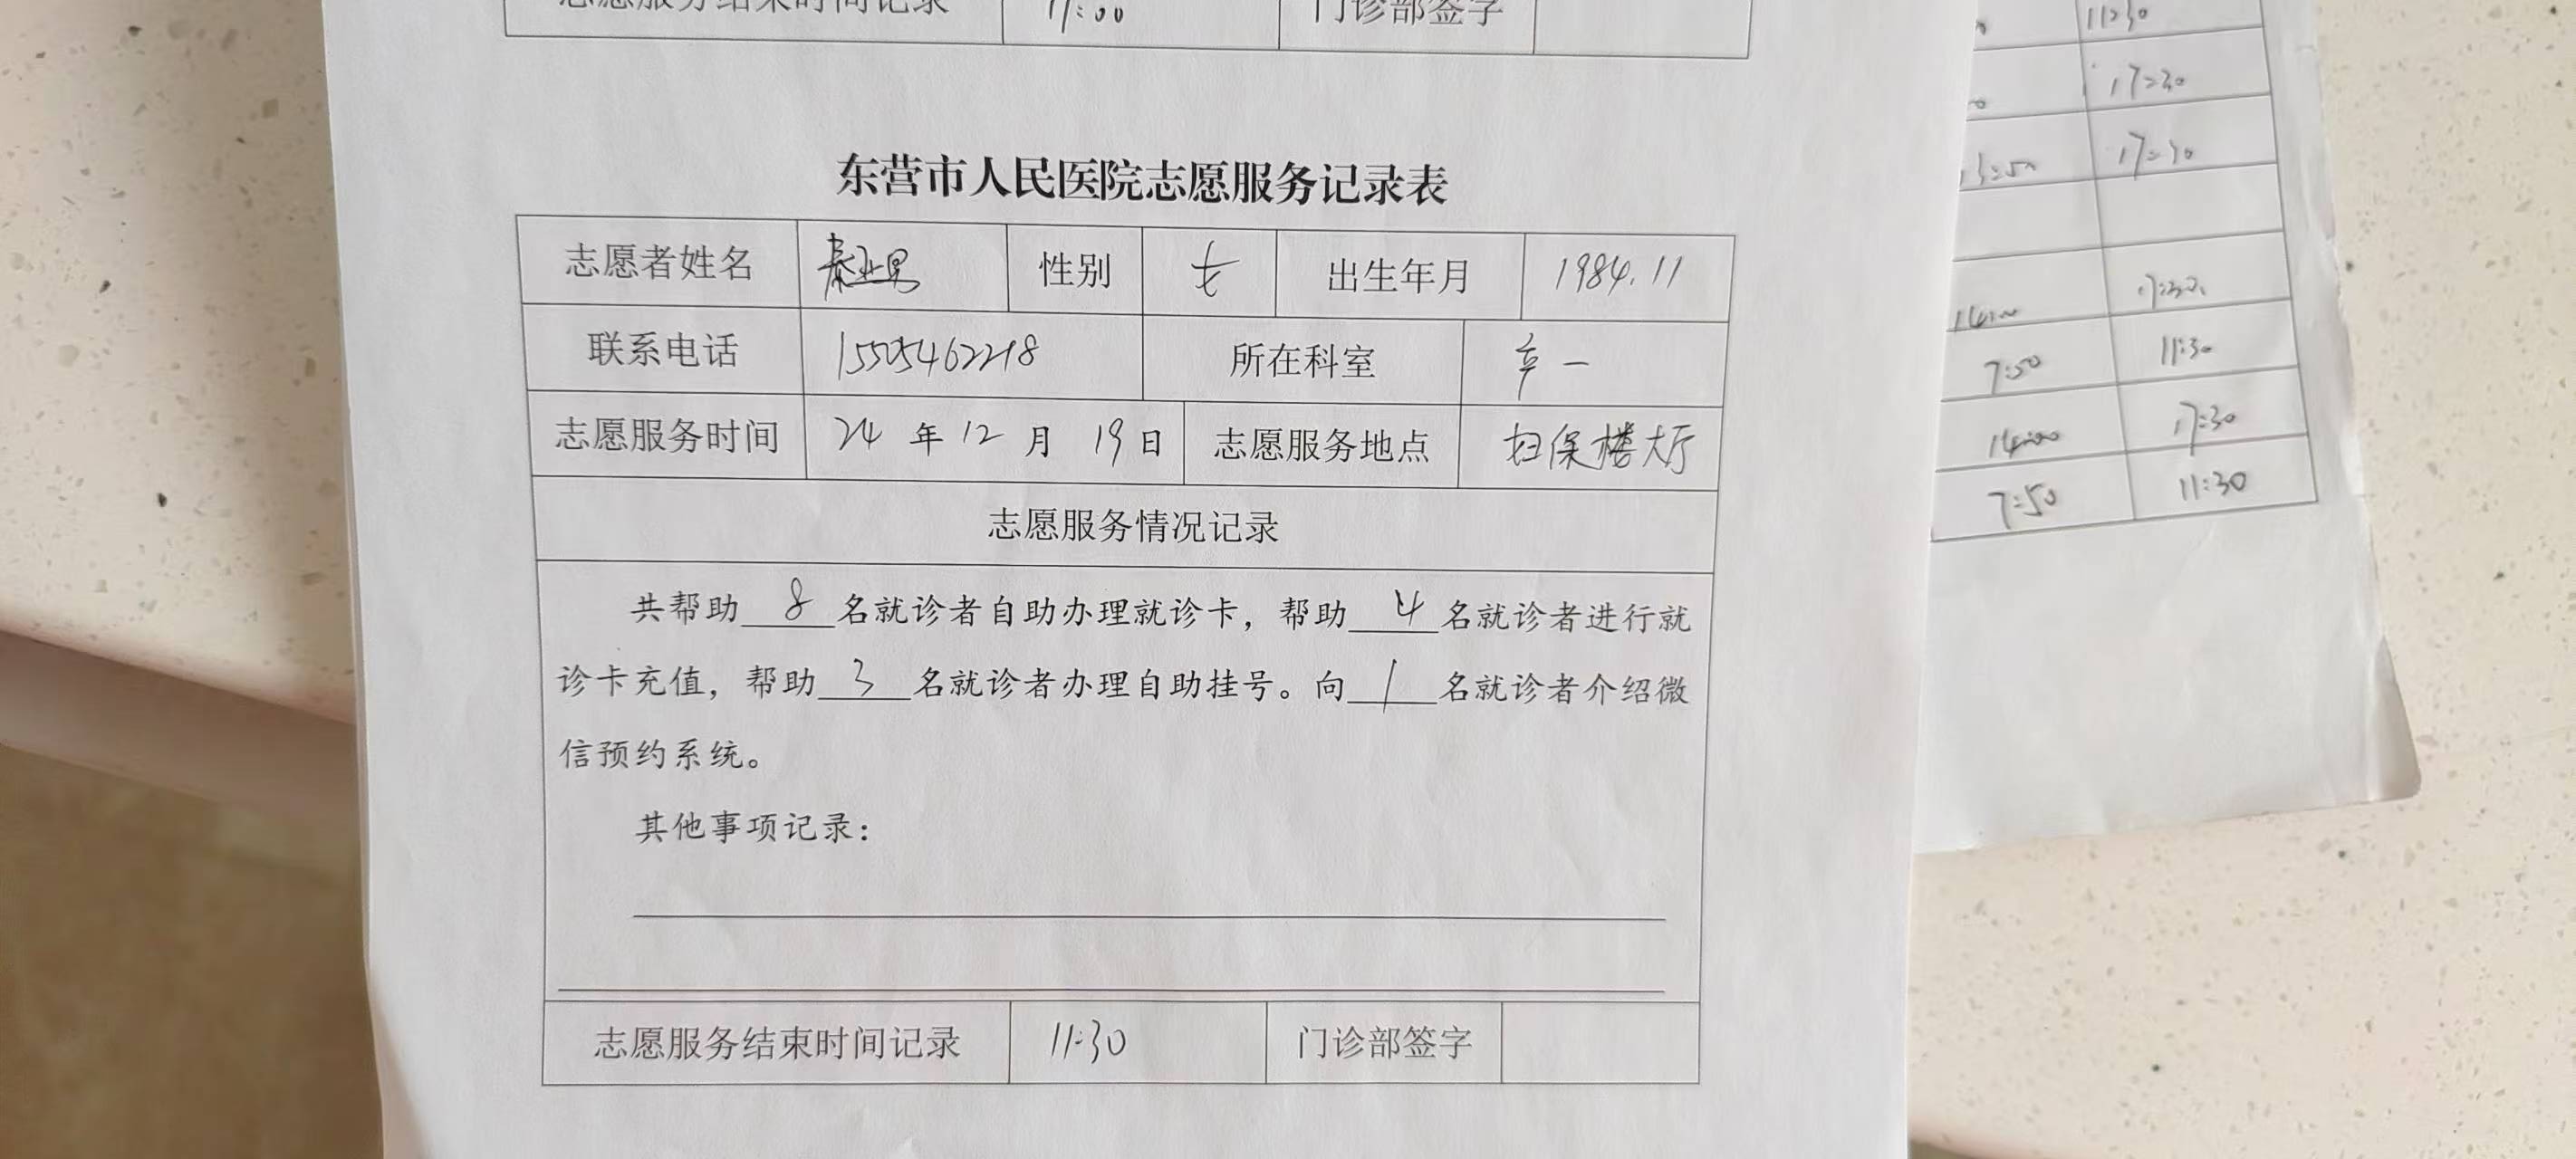 志愿服务结束时间记录 11:00 门诊部签字
东营市人民医院志愿服务记录表
志愿者姓名 秦亚男 性别 女 出生年月 1984.11
联系电话 15505462218 所在科室 产一
志愿服务时间 24 年 12 月 19 日 志愿服务地点 妇保楼大厅
志愿服务情况记录
共帮助 8 名就诊者自助办理就诊卡，帮助 4 名就诊者进行就
诊卡充值，帮助 3 名就诊者办理自助挂号。向 1 名就诊者介绍微
信预约系统。
其他事项记录：
志愿服务结束时间记录 11:30 门诊部签字
11:30
17:30
13:50 17:30
14:00 17:30
7:50 11:30
14:00 17:30
7:50 11:30